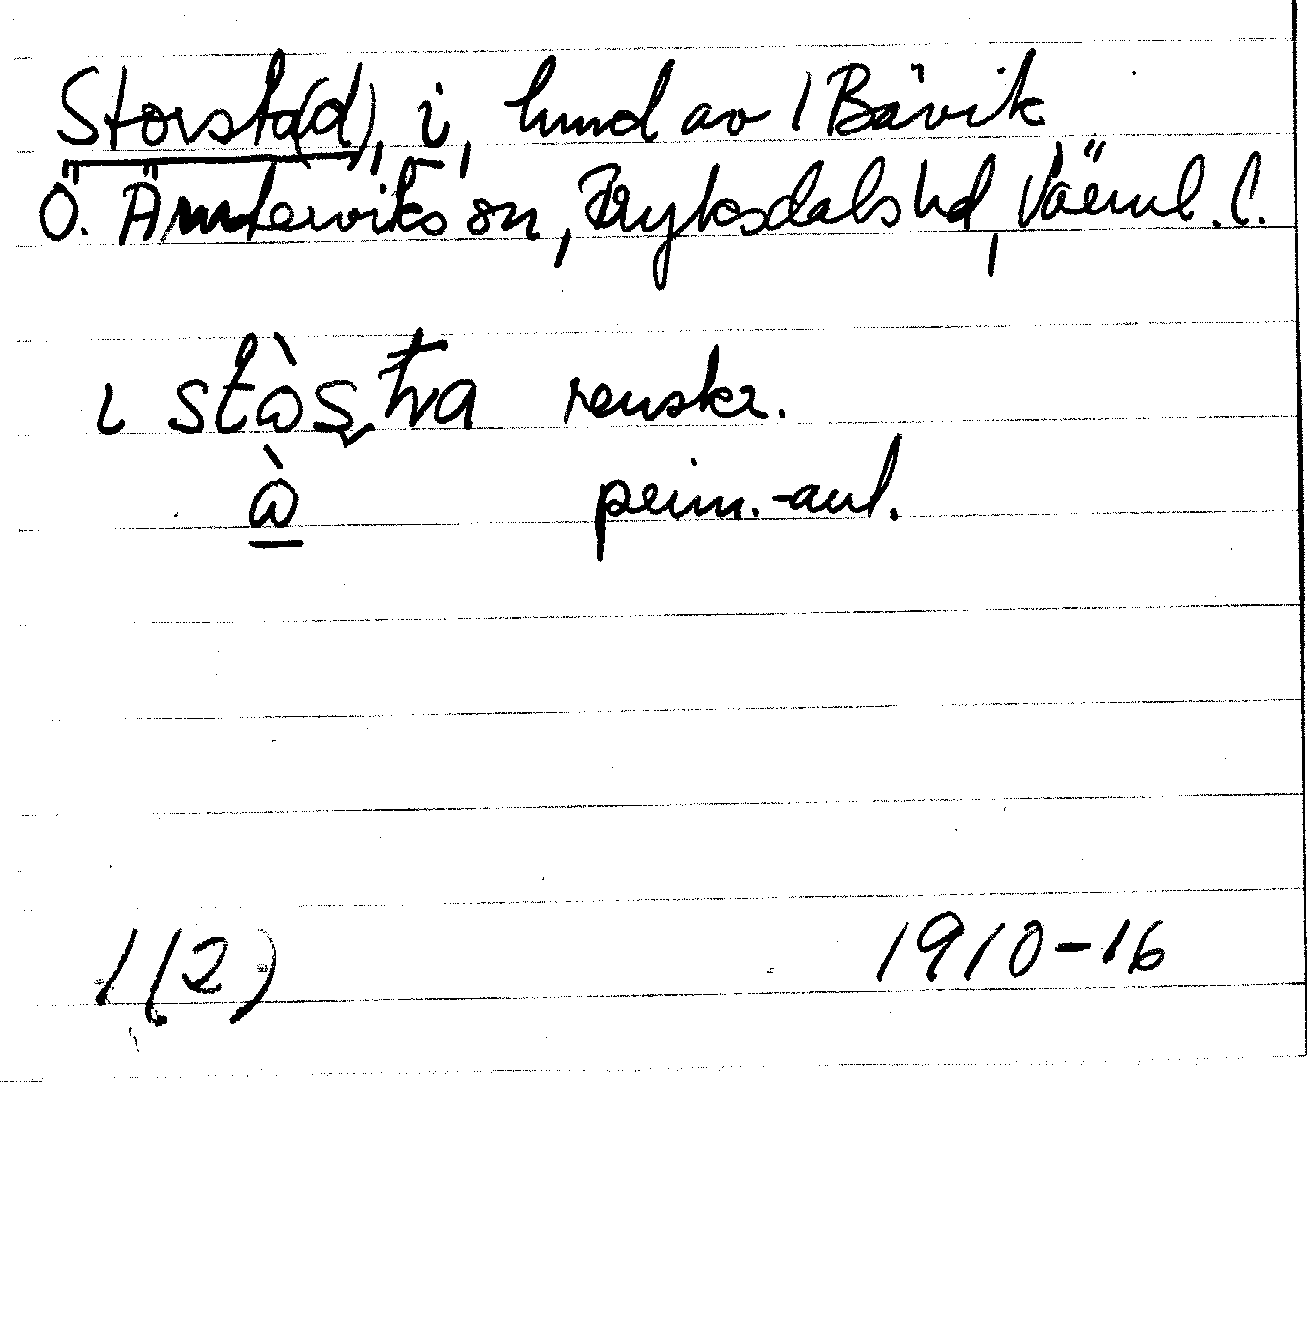 Storsta(d), i, hmd av 1 Bävik
Ö. Ämterviks sn, Fryksdals hd, Värml. l.
ı stɷ̀sṭra renskr.
ɷ̀ prim.-anl.
1(2) 1910-16